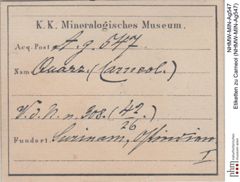 K. K. Mineralogisches Museum.
Acq. Post A. g. 547.
Nam Quarz. (Carneol.)
V. d. N. n. 308. (42/26)
Fundort: Surinam, Ostindien
I
NHMW-MIN-Ag547
(NHMW-MIN-Ag547)
Etiketten zu Carneol
nhm